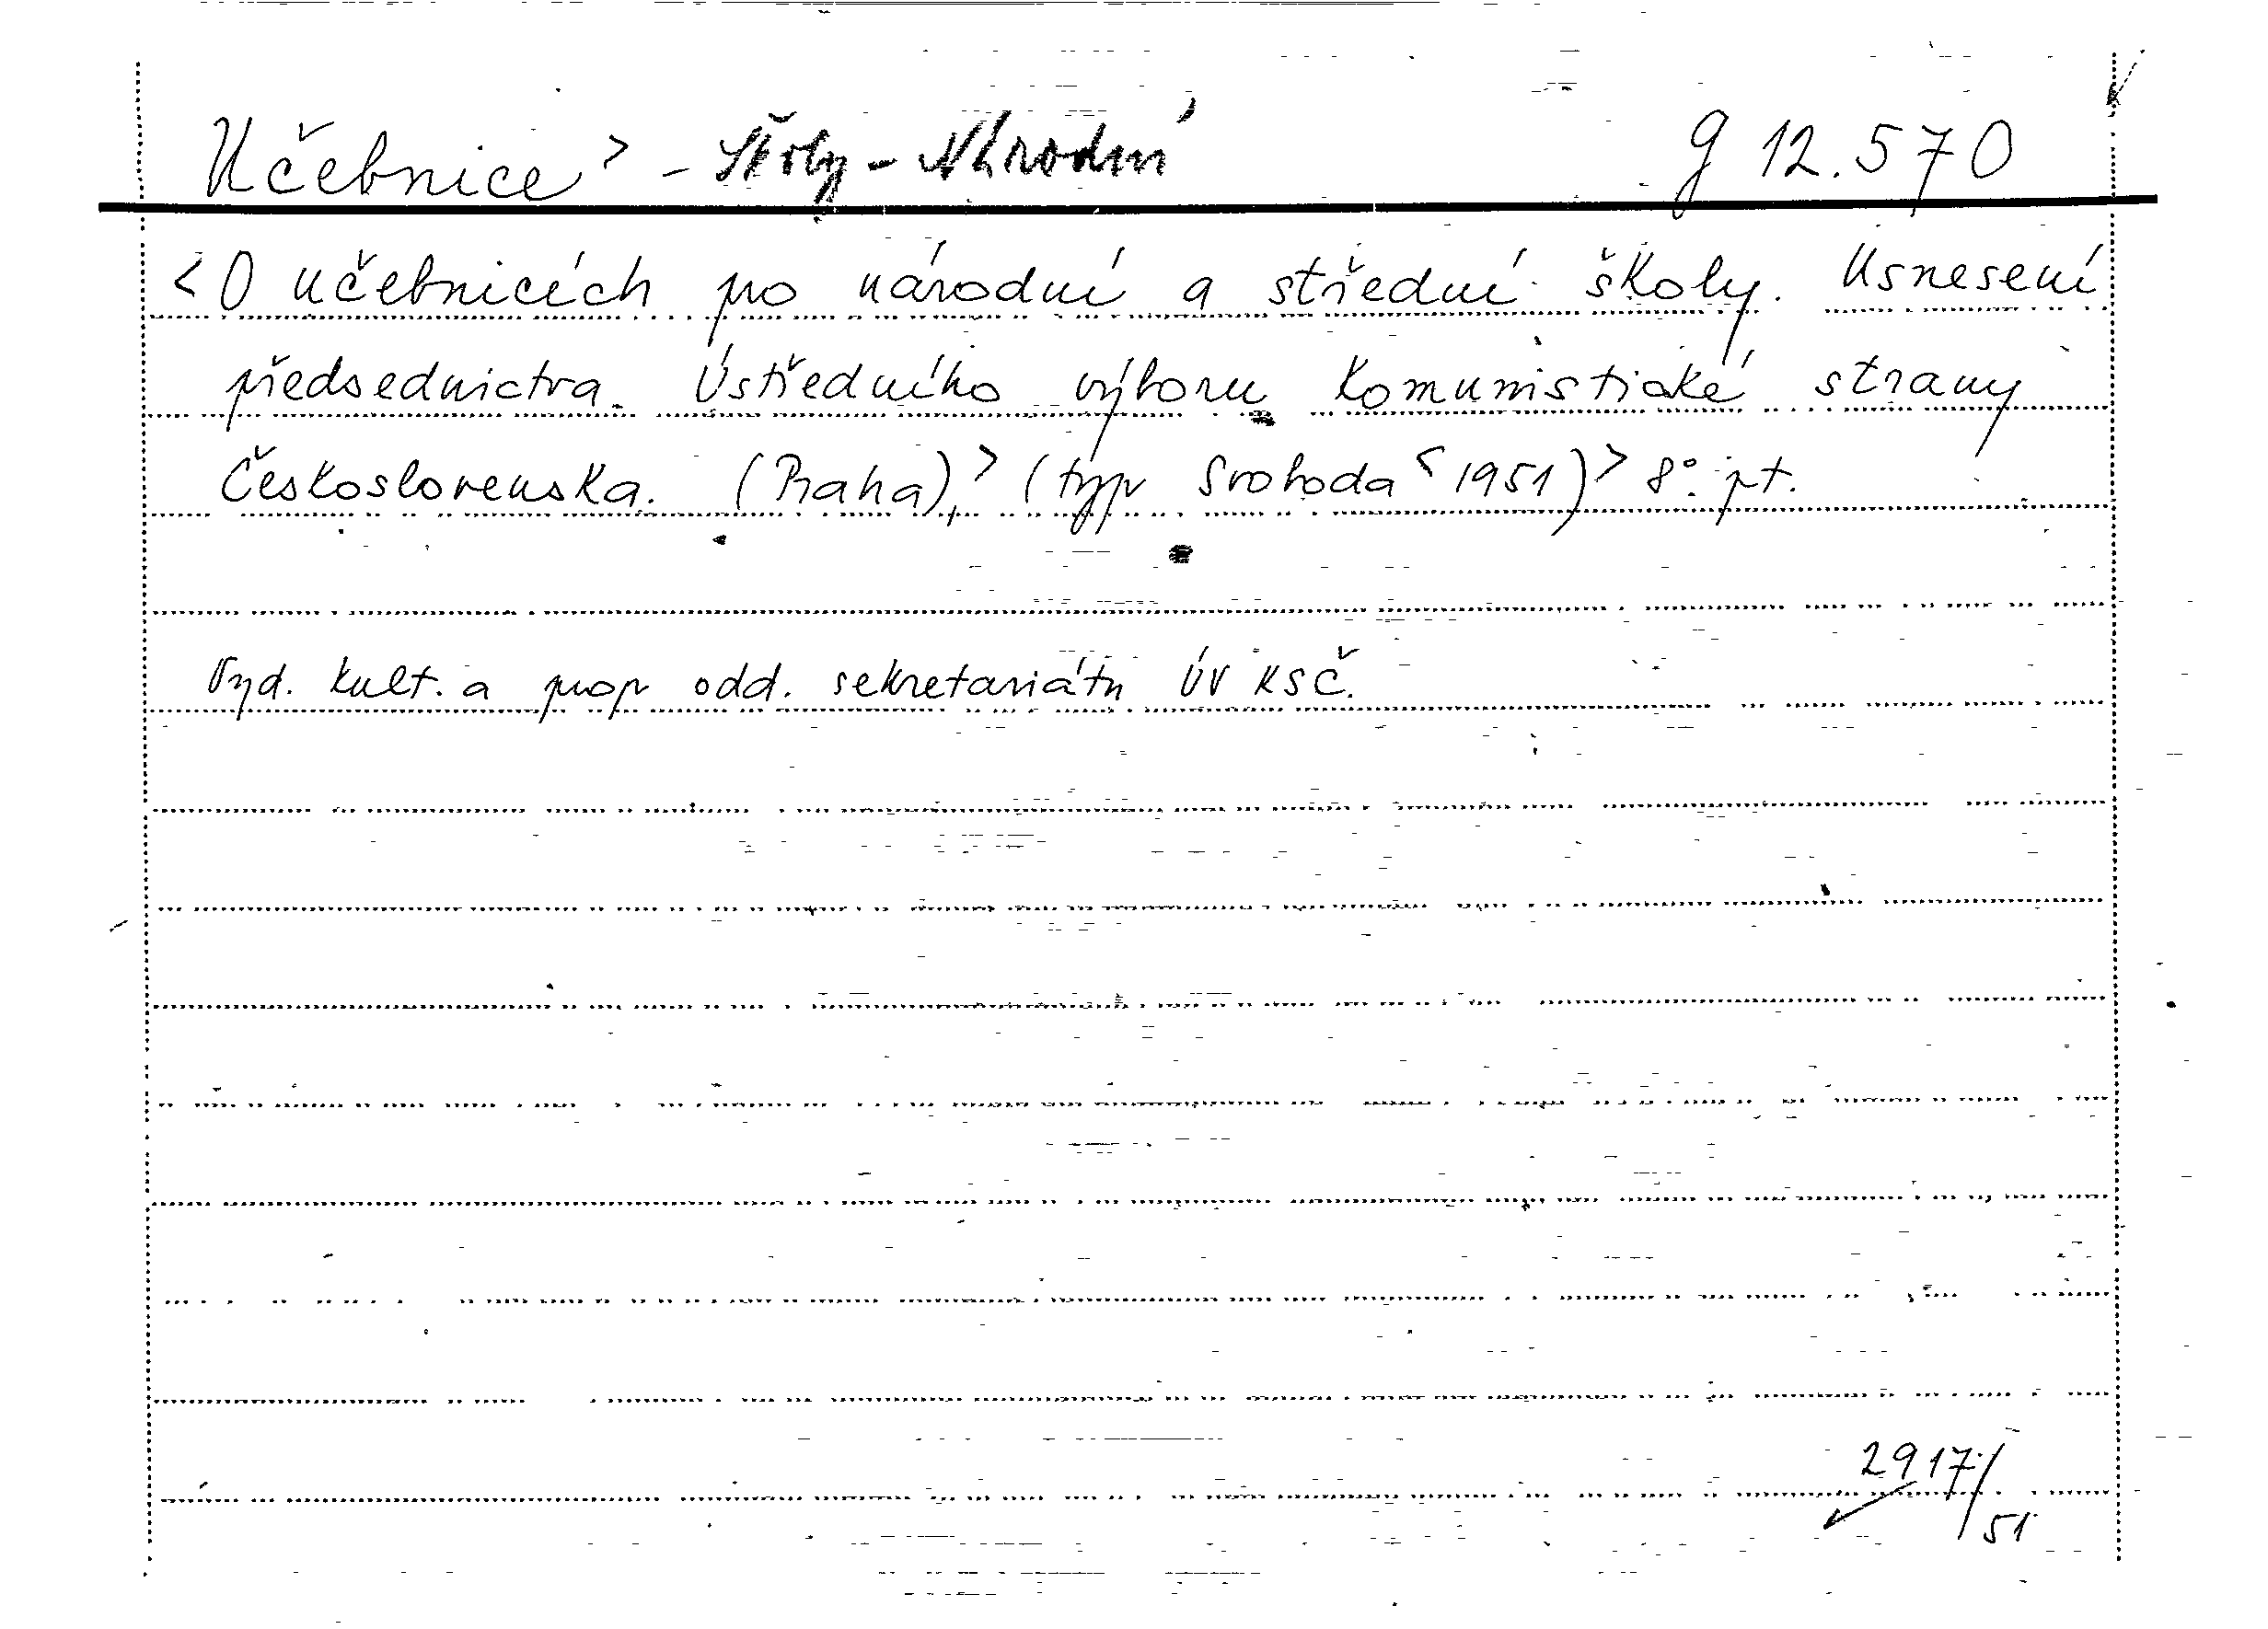 Učebnice> - Školy - Národní g 12.570
<O učebnicích pro národní a střední školy. Usnesení
předsednictva Ústředního výboru Komunistické strany
Československa. (Praha),> (typ Svoboda <1951)> 8°. pt.
Vyd. kult. a prop odd. sekretariátu ÚV KSČ.
2917/51